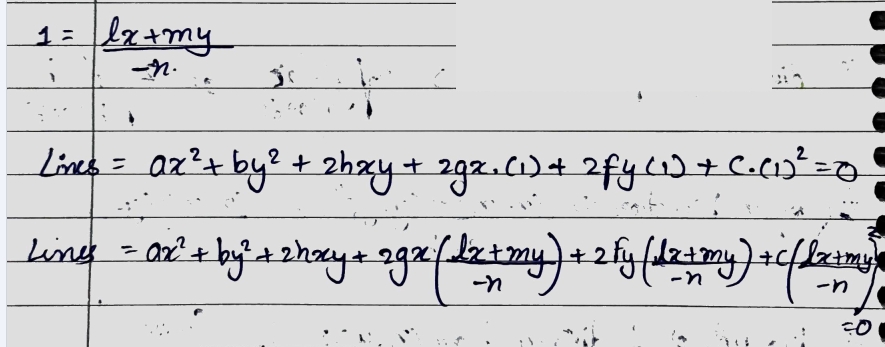 1 = lx+my / -n.
Lines = ax² + by² + 2hxy + 2gx.(1) + 2fy(1) + C.(1)² = 0
Lines = ax² + by² + 2hxy + 2gx (lx+my / -n) + 2fy (lx+my / -n) + c (lx+my / -n)²
=0